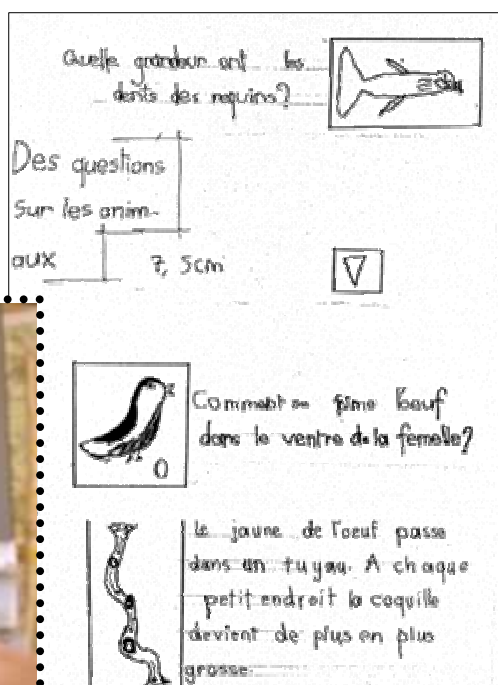 Quelle grandeur ont les
dents des requins?
Des questions
sur les anim-
aux
7, 5cm
Comment se forme l'oeuf
dans le ventre de la femelle?
le jaune de l'oeuf passe
dans un tuyau. A chaque
petit endroit la coquille
devient de plus en plus
grosse